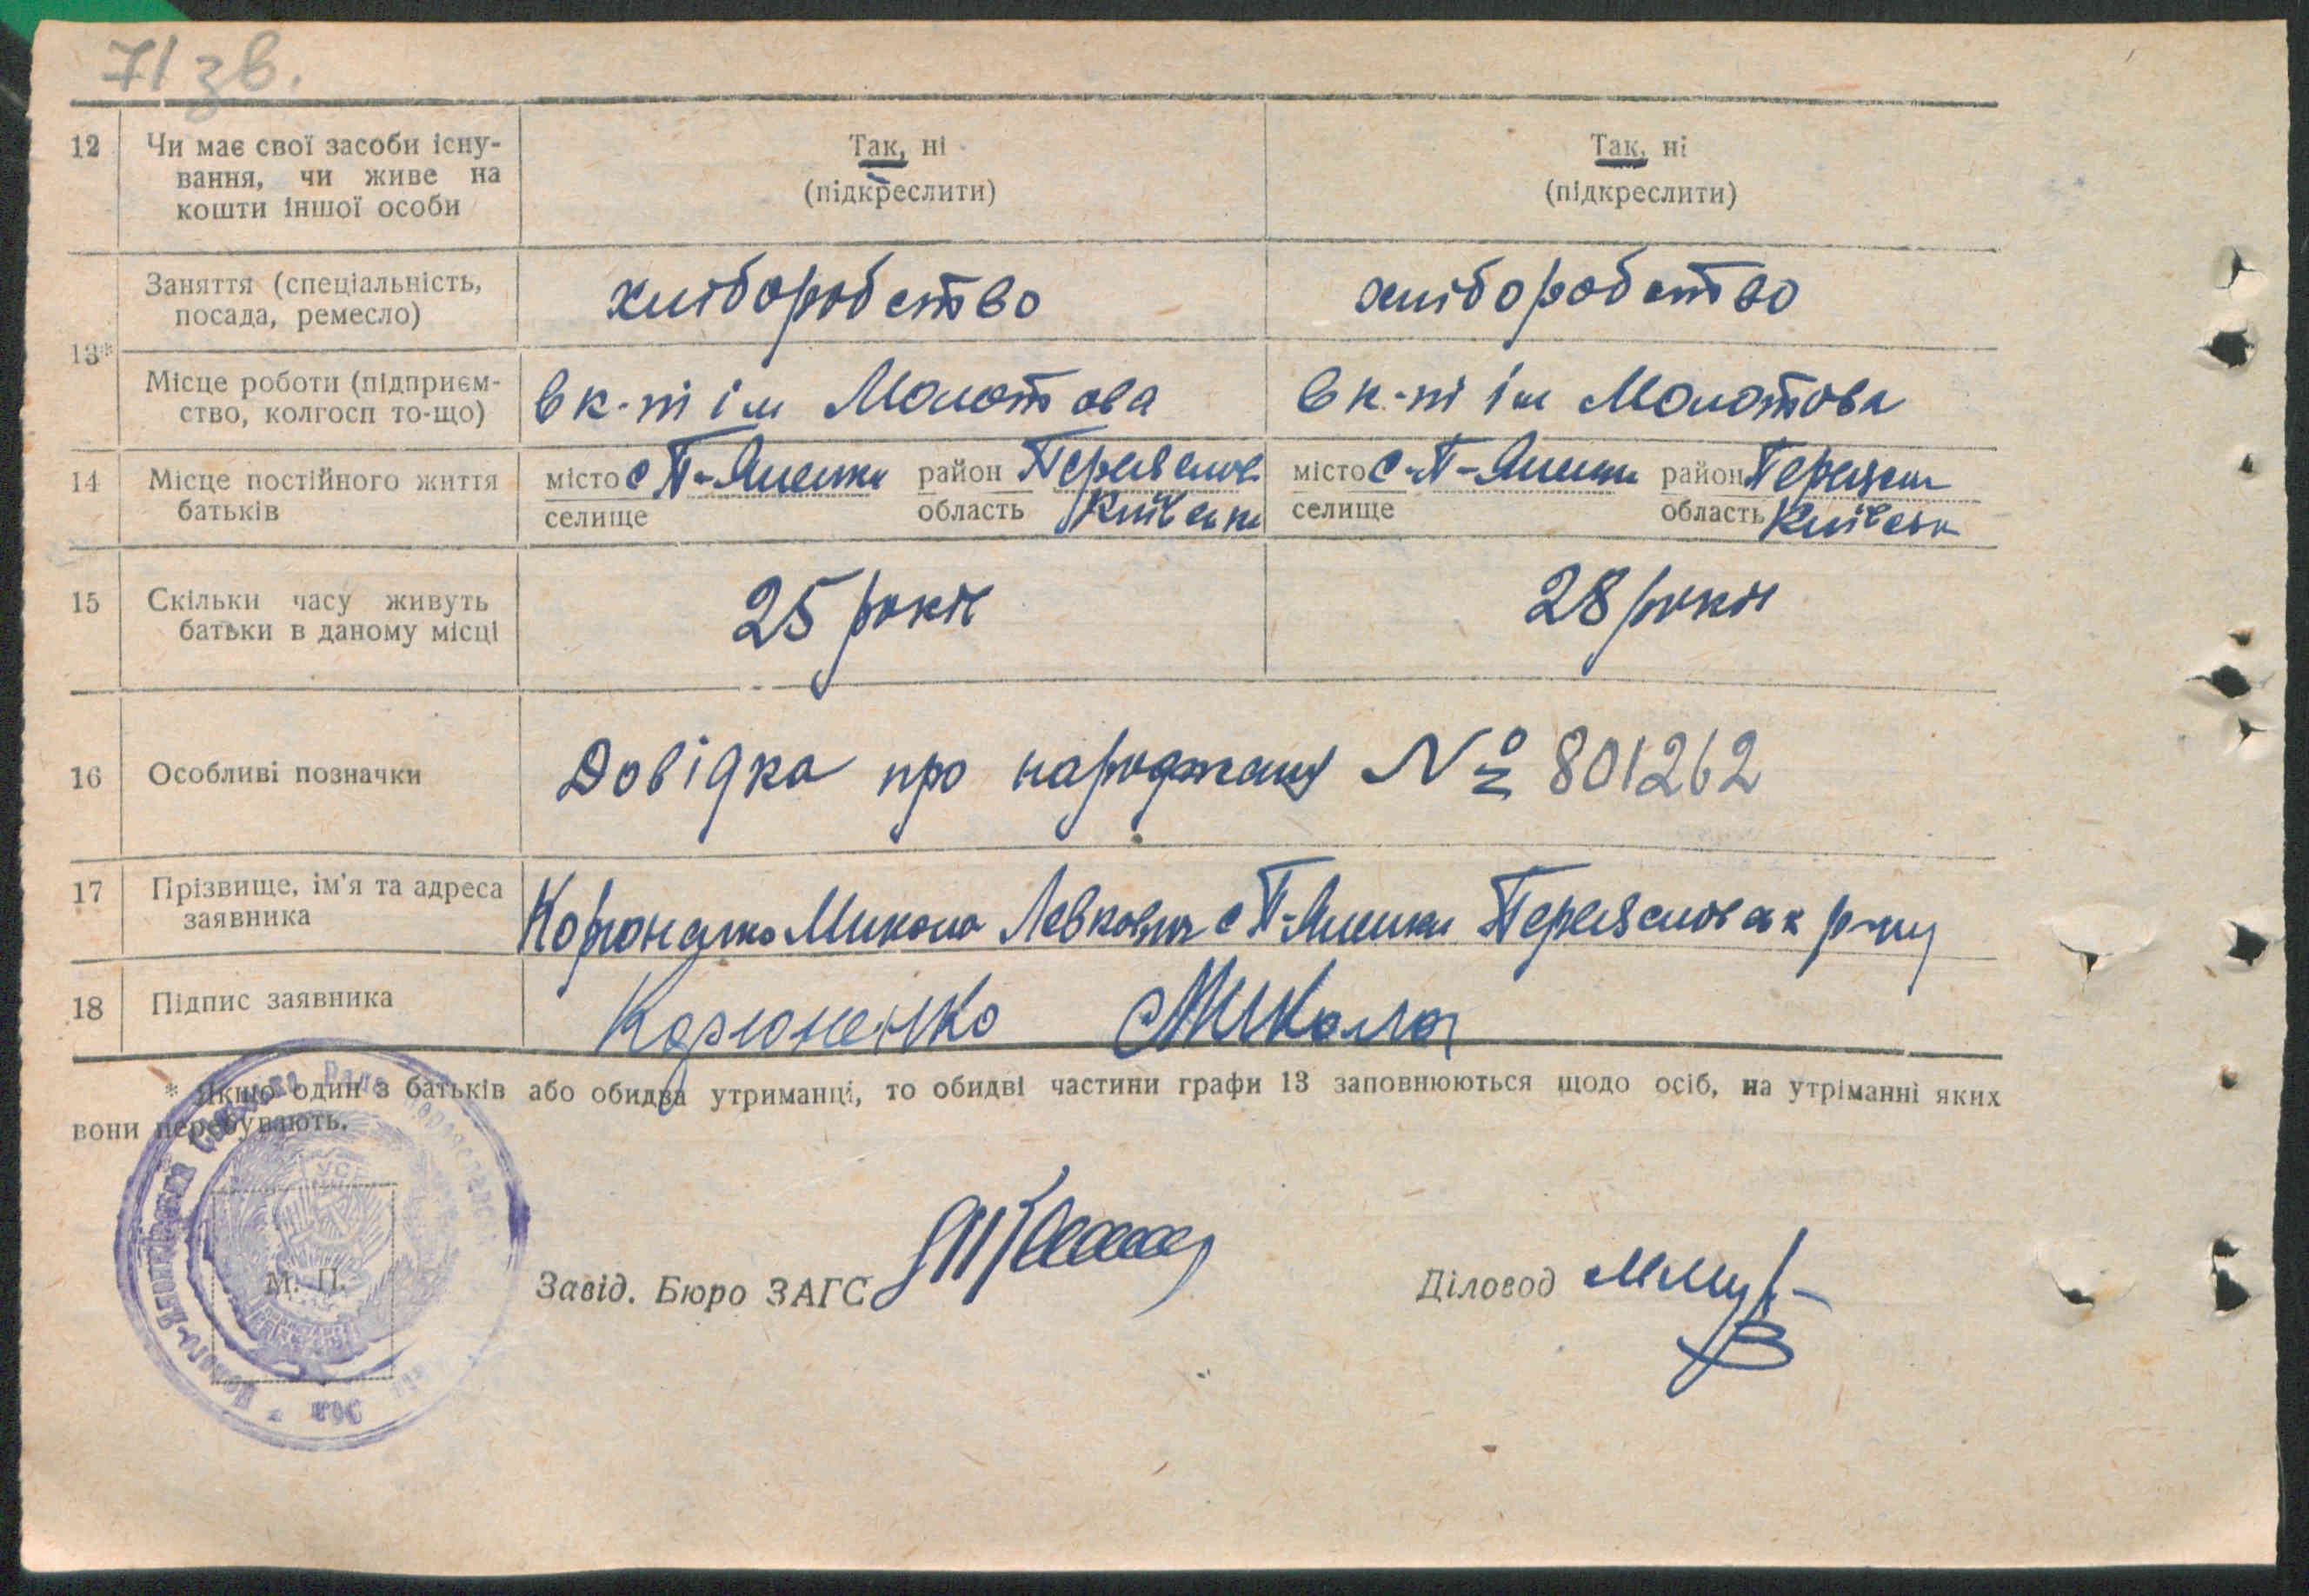 71 зв.
12 Чи має свої засоби існу- Так, ні Так, ні
вання, чи живе на (підкреслити) (підкреслити)
кошти іншої особи
Заняття (спеціальність, хліборобство хліборобство
посада, ремесло)
13*
Місце роботи (підприєм- в к-пі ім Молотова в к-пі ім Молотова
ство, колгосп то-що)
14 Місце постійного життя місто с П-Яненки район Переяслов місто с-П-Яненки район Переясл
батьків селище область Київськ селище область Київськ
15 Скільки часу живуть 25 роки 28 роки
батьки в даному місці
16 Особливі позначки Довідка про народження № 801262
17 Прізвище, ім'я та адреса Короненко Микола Левкович с П-Яненки Переясловск р-ну
заявника
18 Підпис заявника Короненко Микола
* Якщо один з батьків або обидва утриманці, то обидві частини графи 13 заповнюються щодо осіб, на утріманні яких
вони перебувають.
М. П.
Завід. Бюро ЗАГС
Діловод